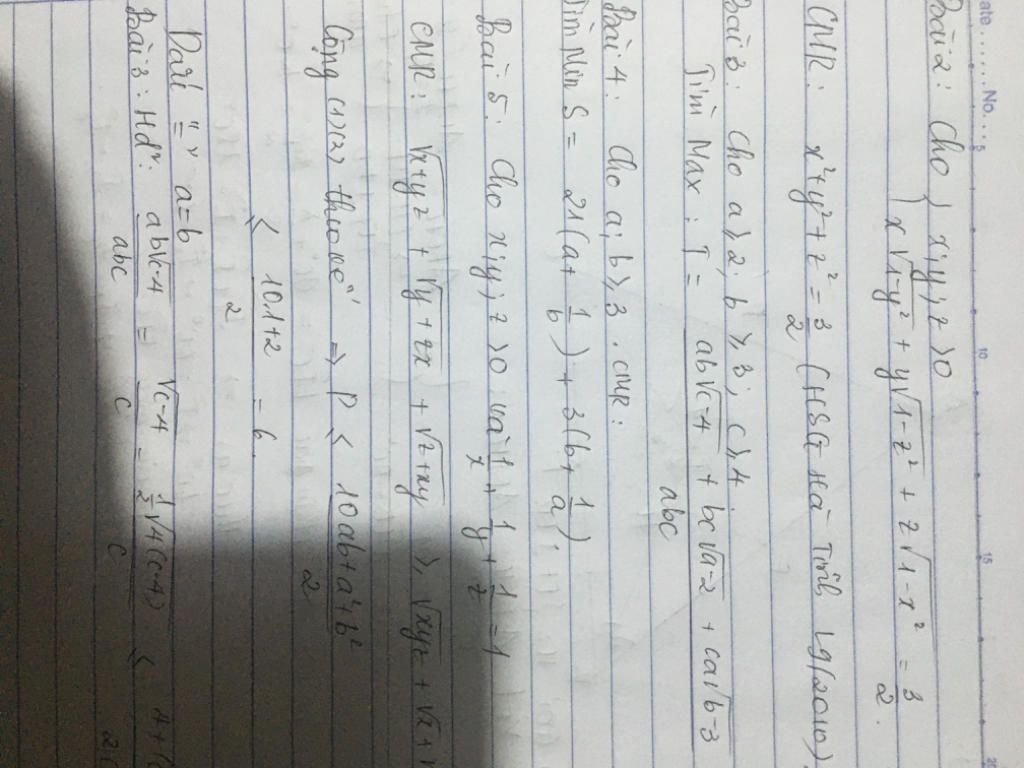 ate ....... No. ... 5 10 15 20
Bài 2: Cho { x; y; z > 0
x√1-y² + y√1-z² + z√1-x² = 3/2.
CMR: x² + y² + z² = 3/2 (HSG Hà Tĩnh Lg (2010)
Bài 3: Cho a ≥ 2; b ≥ 3; c ≥ 4
Tìm Max: T = ab√c-4 + bc√a-2 + ca√b-3 / abc
Bài 4: Cho a; b ≥ 3. CMR:
Tìm Min S = 21(a + 1/b) + 3(b + 1/a).
Bài 5: Cho x; y; z > 0 và 1/x + 1/y + 1/z = 1
CMR: √x+yz + √y+zx + √z+xy ≥ √xyz + √x +
Cộng (1)(2) theo vế ⇒ P ≤ 10ab+a²+b² / 2
≤ 10.1+2 / 2 = 6.
Dấu "=" a=b
Bài 3: Hdⁿ: ab√c-4 / abc = √c-4 / c = 1/2 √4(c-4) / c ≤